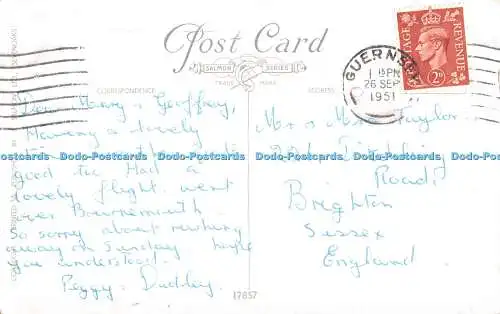 Post Card
SALMON SERIES
TRADE MARK
CORRESPONDENCE
ADDRESS
POSTAGE REVENUE
2D
GUERNSEY
1 PM
26 SEP
1951
Dear Mary Geoffrey,
Having a lovely
good too Had a
lovely flight went
over Bournemouth
So sorry about rushing
away on Sunday hope
you understood.
Peggy. Dudley
Mr & Mrs Taylor
Road,
Brighton
Sussex
England.
Dodo-Postcards Dodo-Postcards Dodo-Postcards Dodo-Postcards Dodo-Postcards
17857